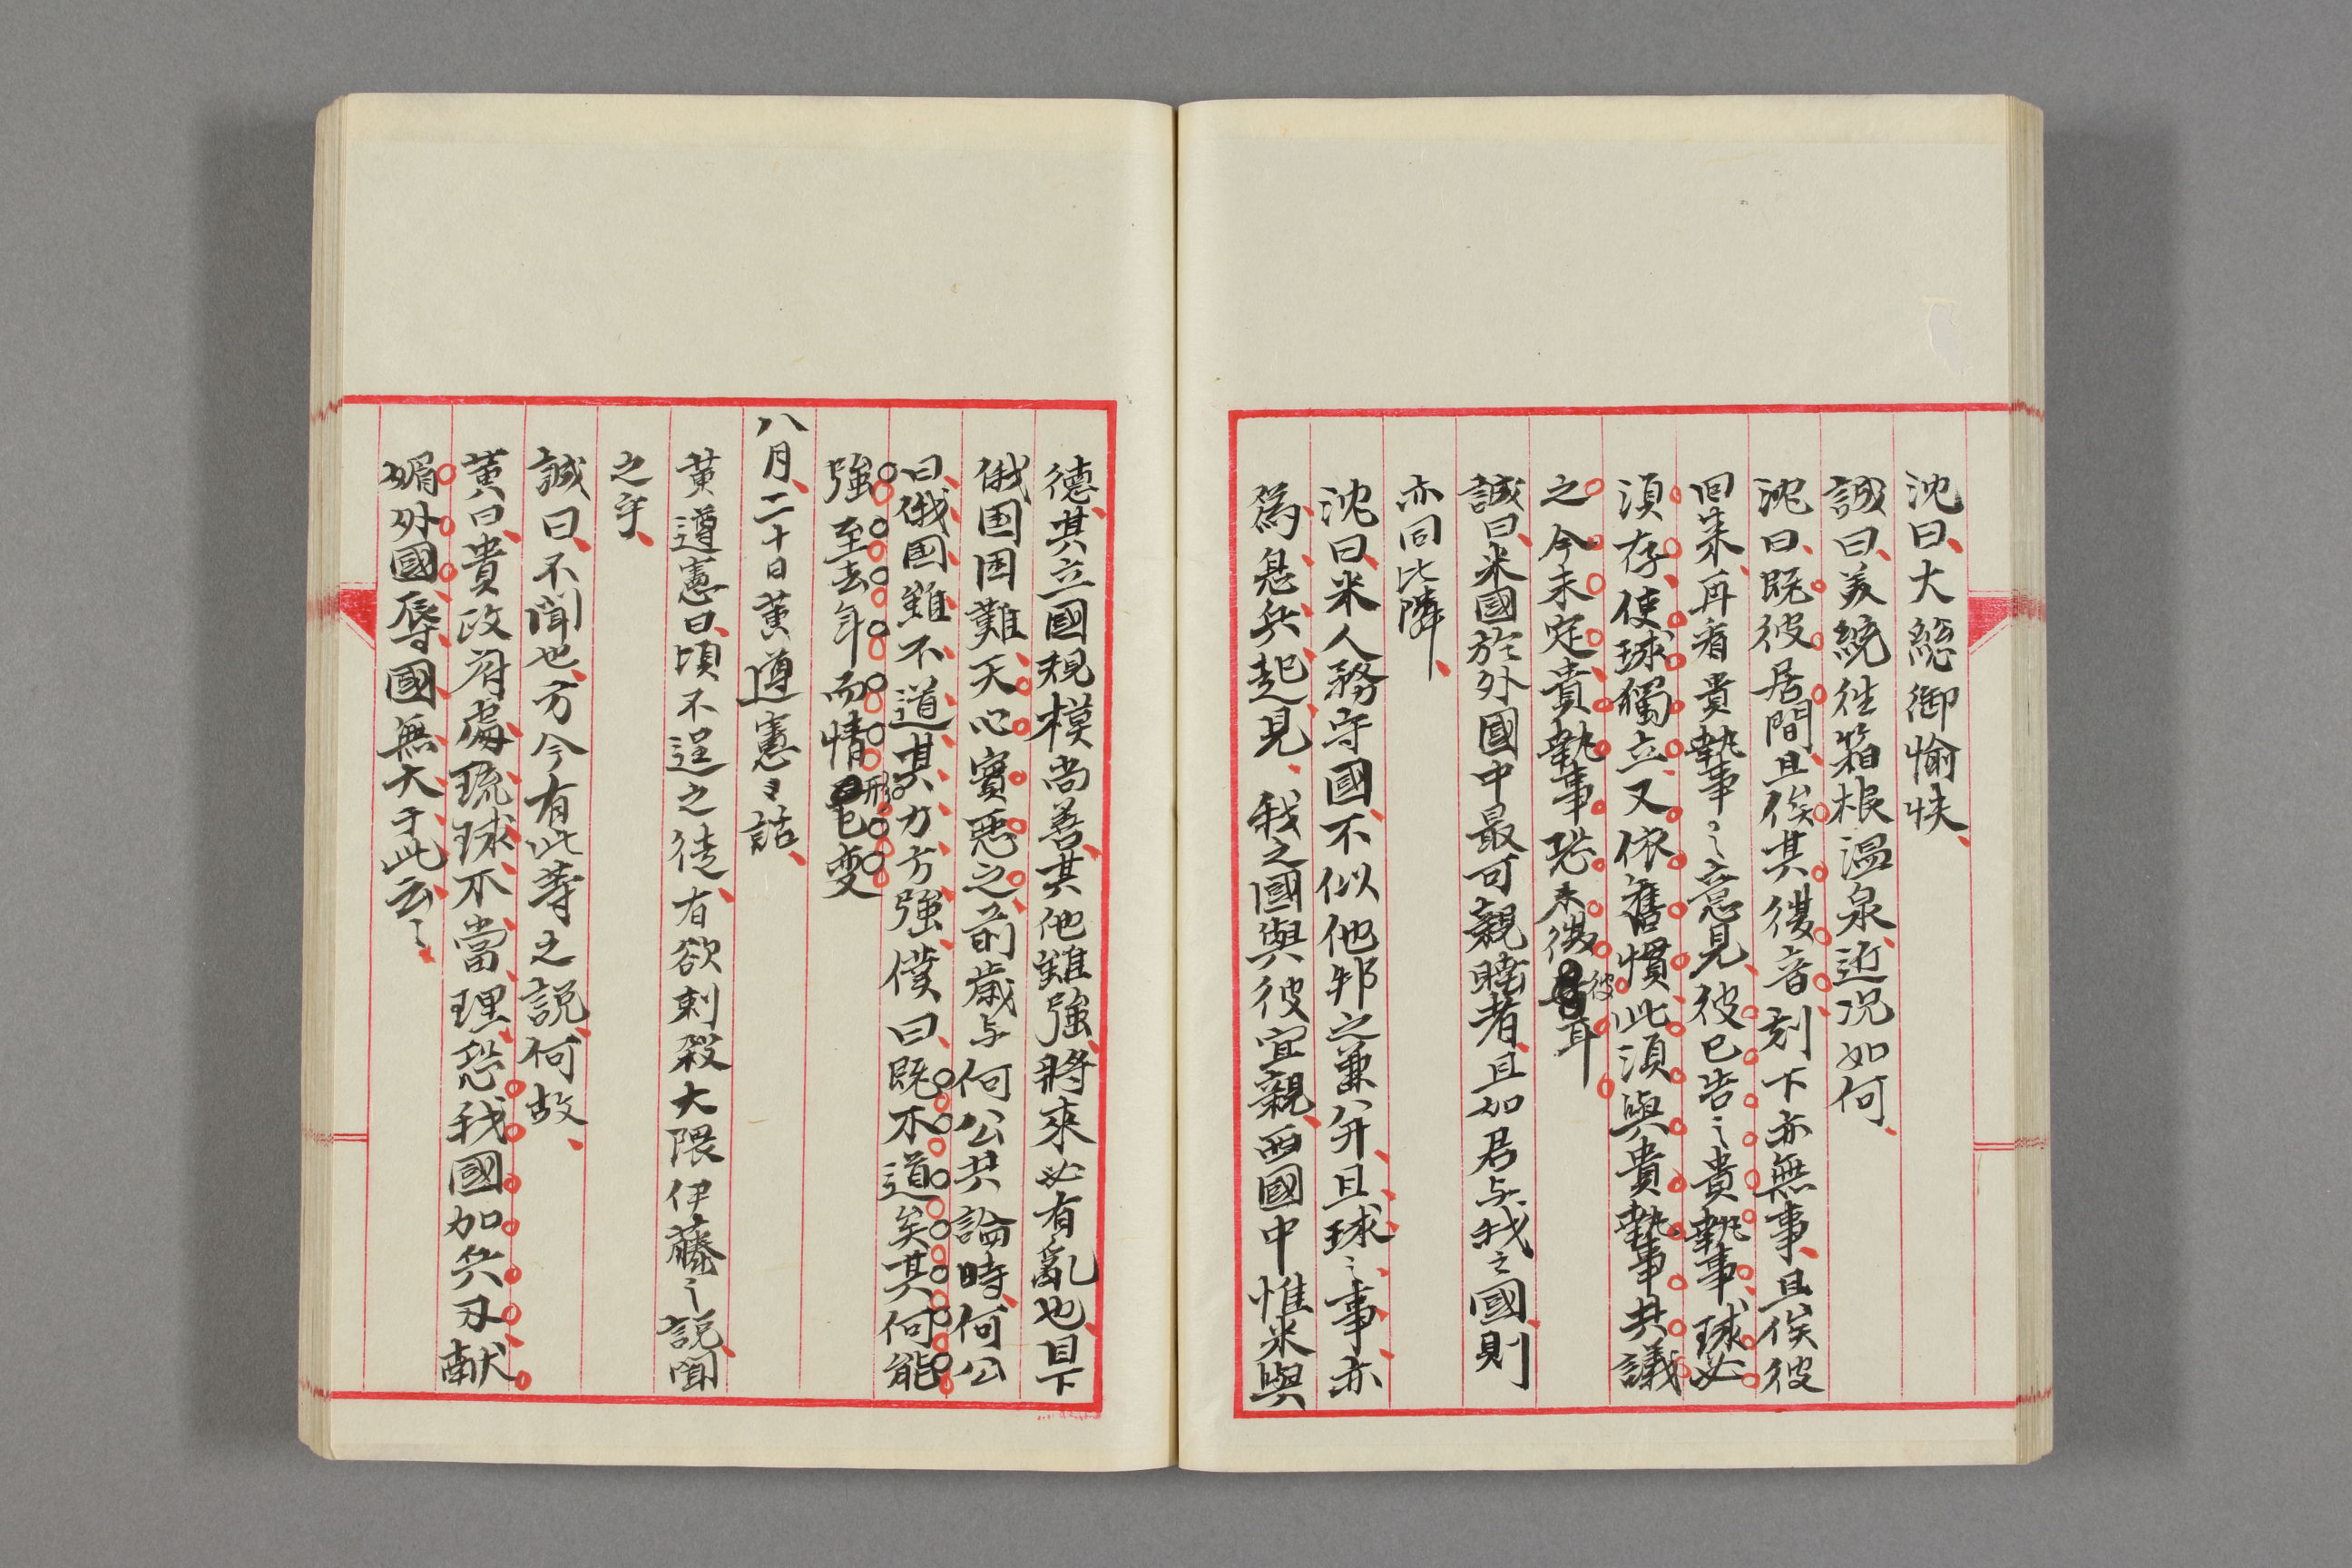 沈曰、大総御愉快、
誠曰、美統往箱根温泉、近况如何、
沈曰、既彼居間、且俟其復音、刻下亦無事、且俟彼
回来、再看貴執事〻意見、彼已告〻貴執事、球必
須存、使球獨立、又依舊慣、此須與貴執事共議
之、今未定、貴執事恐未復彼耳
誠曰、米國於外國中最可親睦者、且如君与我之國、則
亦同比隣、
沈曰、米人務守國、不似他邦之兼併、且球〻事亦
為息兵起見、我之國與彼宜親、西國中惟米與
德、其立國規模尚善、其他雖強、將來必有亂也、目下
俄国困難、天心實惡之、前歳与何公共論時、何公
曰、俄国雖不道、其力方強、僕曰、既不道矣、其何能
強、至去年而情形已変
八月、二十日黄遵憲〻話、
黄遵憲曰、頃不逞之徒、有欲刺殺大隈伊藤〻説、聞
之乎、
誠曰、不聞也、方今有此等之説、何故、
黄曰、貴政府處琉球、不當理、恐我國加兵刃、献
媚外國、辱國、無大于此云〻、